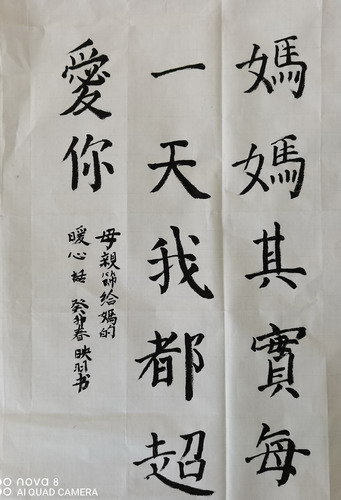 媽媽其實每
一天我都超
愛你
母親節給媽的
暖心話 癸卯春 映羽书
nova 8
AI QUAD CAMERA